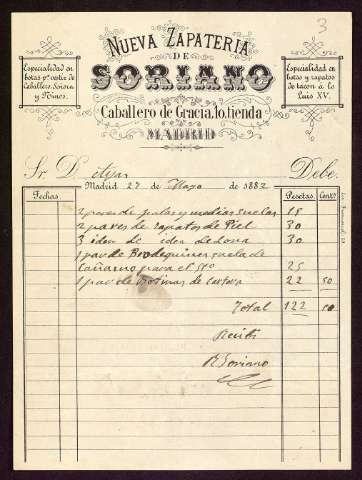 3
NUEVA ZAPATERIA
DE
SORIANO
Caballero de Gracia, 10, tienda
MADRID
Especialidad en
botas pª vestir de
Caballero, Señora
y Niños.
Especialidad en
botas y zapatos
de tacon á lo
Luis XV.
Sr. D. Debe.
Madrid 27 de Mayo de 1882
Fechas. Pesetas. Cents
2 pares de palas y medias suelas 15
2 pares de zapatos de Piel 30
3 iden de iden de lona 30
1 par de Brodequines suela de
Cañamo para el 25
1 par de Botinas de 22 50
Total 122 50
Recibi
R Soriano